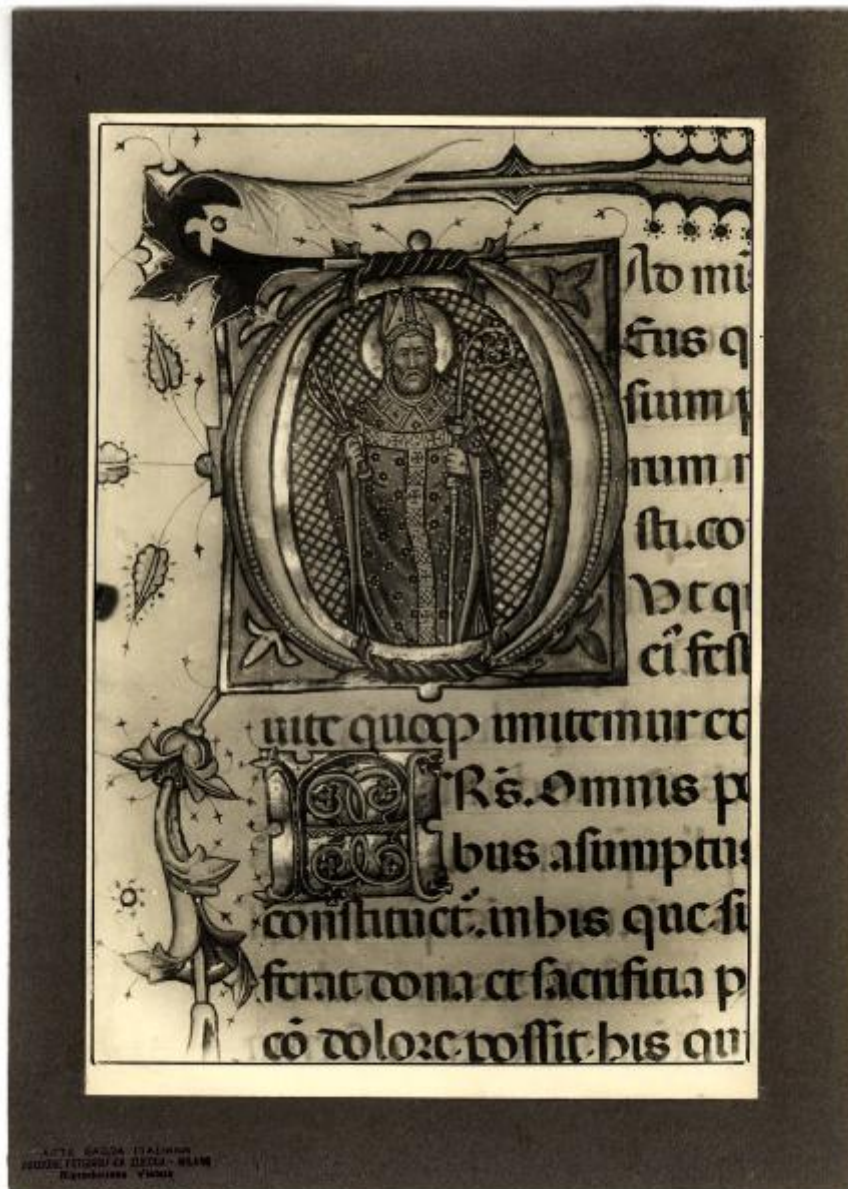 Ad mi
Eus q
sium p
rum n
sti. co
Ut q
ci fest
uite quoqȝ imitemur et
FRS. Omnis po
bus asumptus
constituet̃. in his que su
ferat dona et sacrifitia p
cō dolore possit his qui
ARTE SACRA ITALIANA
Riproduzione Vietata